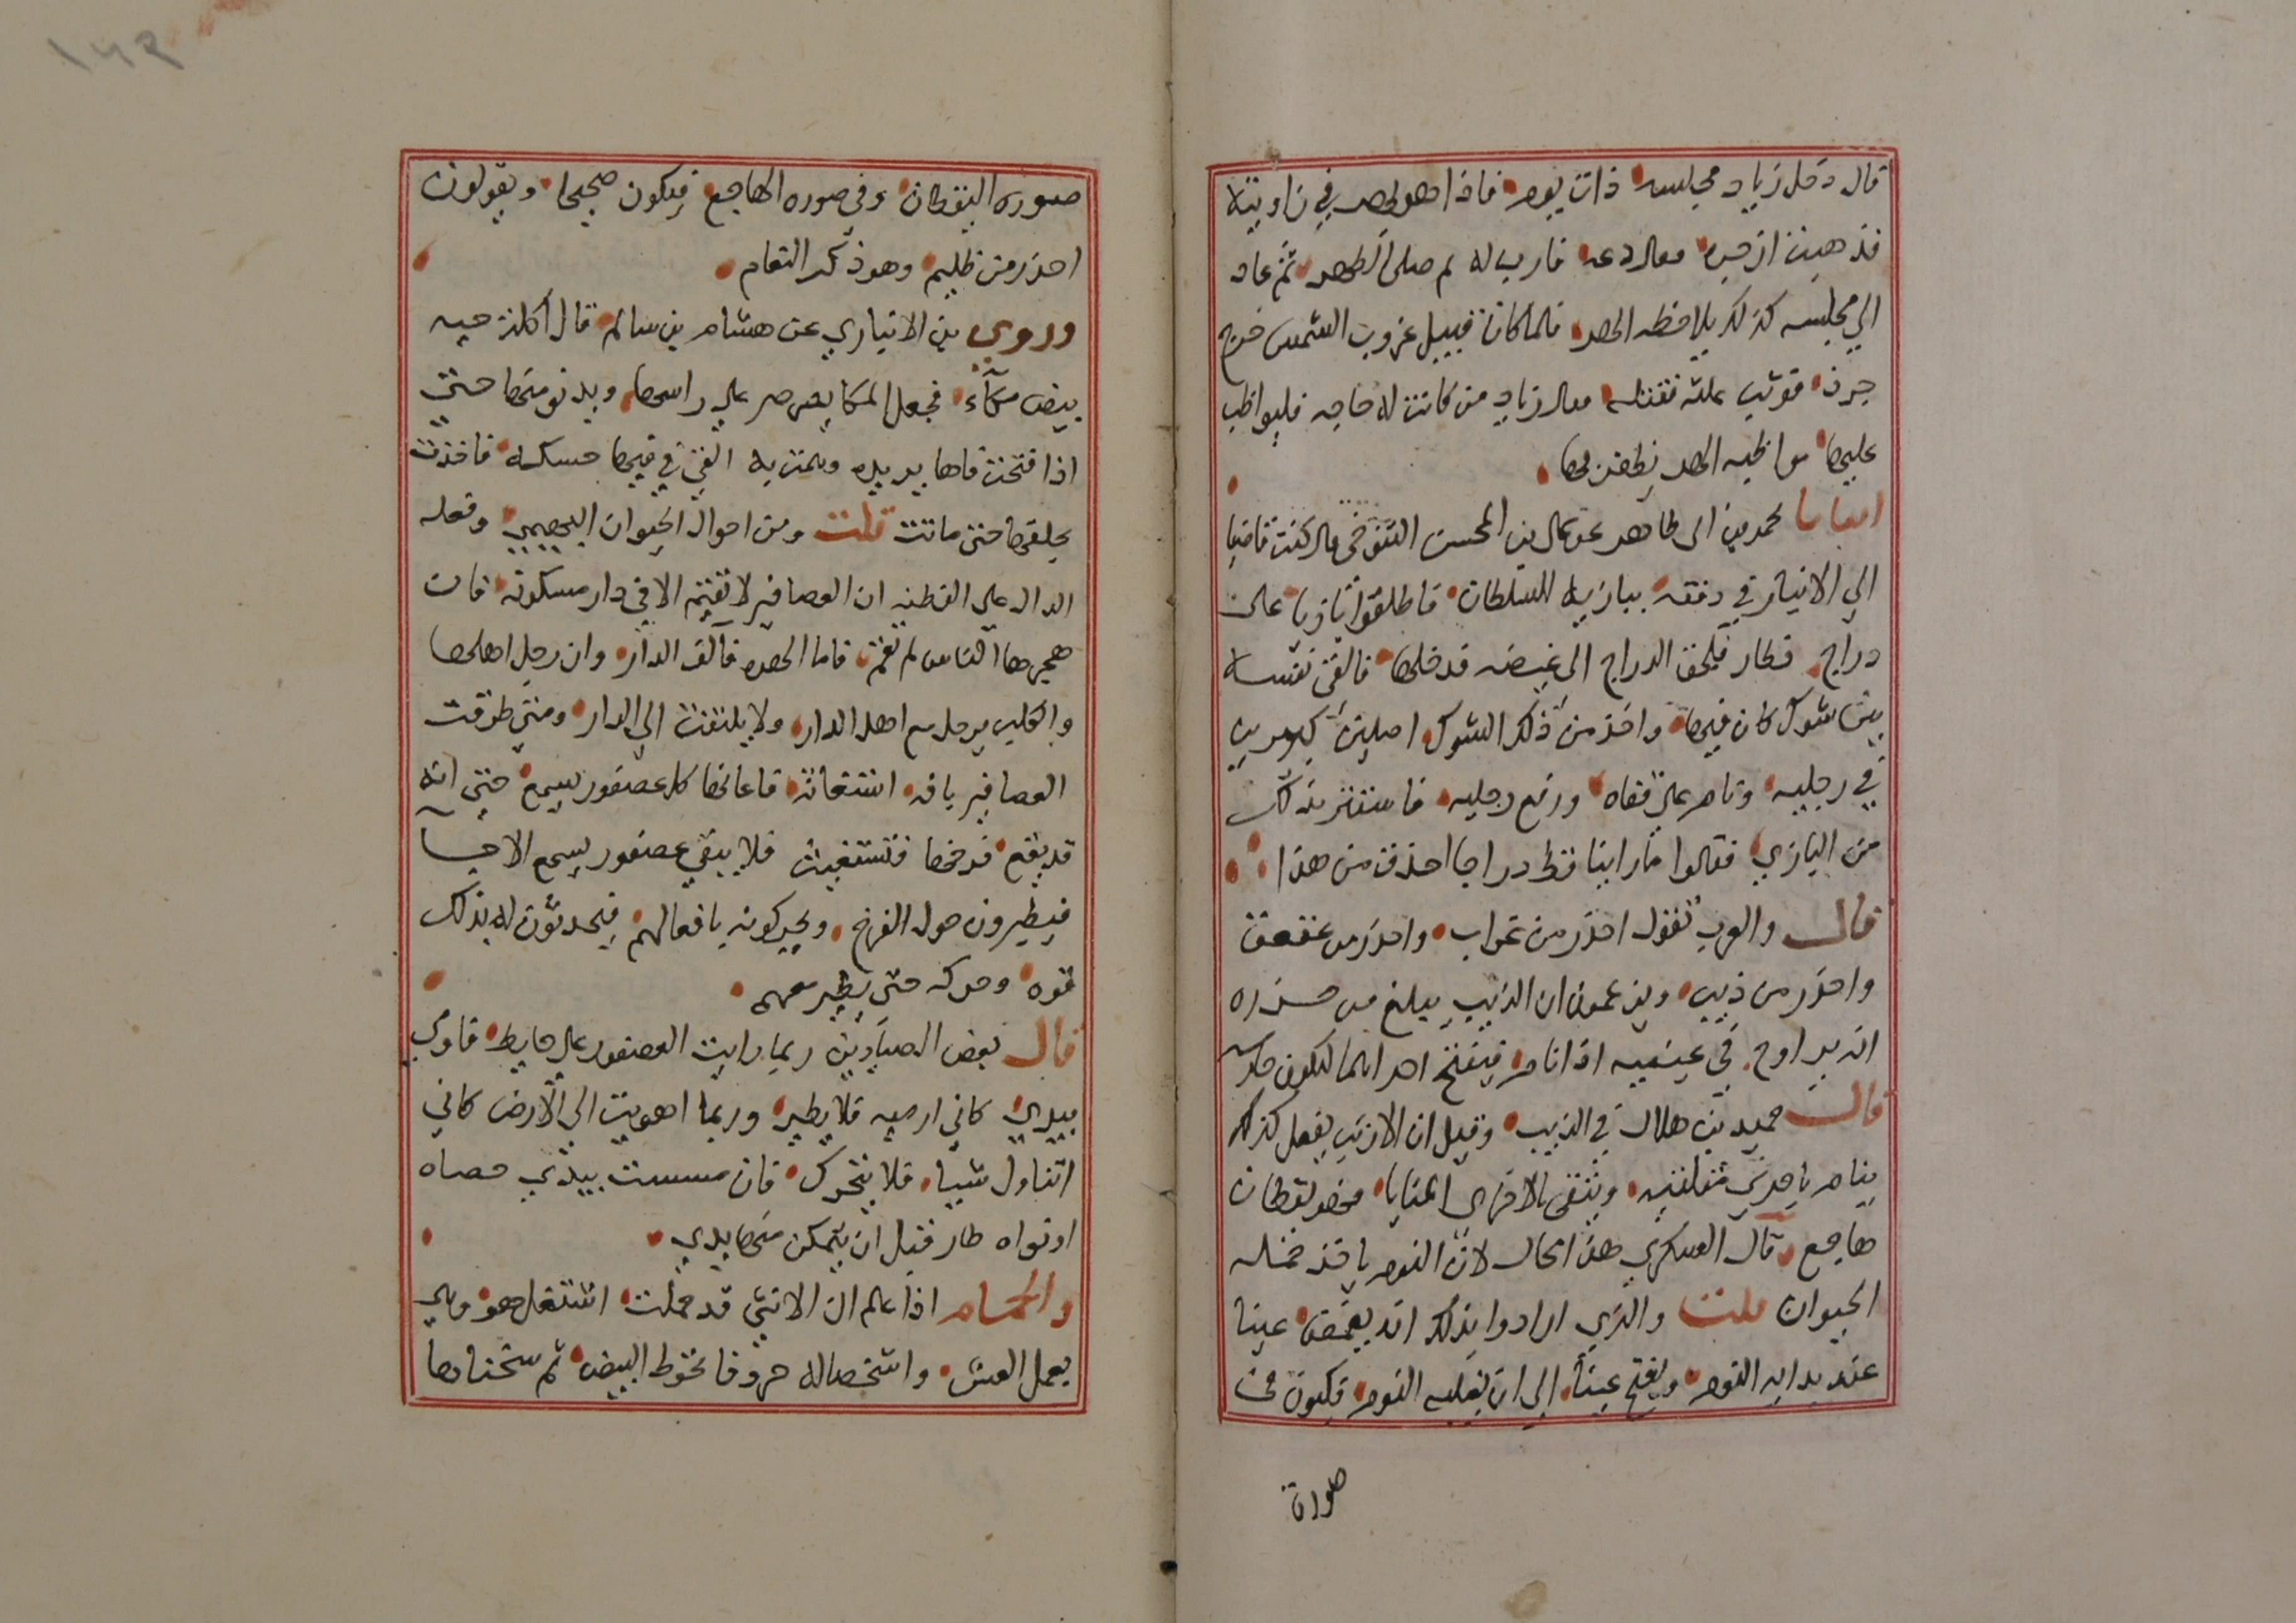 قال دخل زياد مجلسه ذات يوم فاذا هو بهر في زاوية
فذهبت ازجره فقال دعه قارب له ثم صلى الظهر ثم عاد
الي مجلسه كذلك يلاحظ الهر فلما كان قبيل غروب الشمس خرج
جرذ فوثب عليه فقتله فقال زياد من كانت له حاجه فليواظب
عليها مواظبه الهر يظفر بها
انبانا محمد بن ابي طاهر عن علي بن المحسن التنوخي قال كنت قاضيا
الي الانبار في رفقه ببازيه السلطان فاطلقوا بازيا على
دراج فطار فلحق الدراج الى غيضه فدخلها فالقى نفسه
بين شوك كان فيها واخذ من ذلك الشوك اصلين كبيرين
في رجليه ونام على قفاه ورفع رجليه فاستتر بذلك
من البازي فقالوا ما راينا قط دراجا احذق من هذا
قال والعرب تقول احذر من غراب واحذر من عقعق
واحذر من ذيب ويزعمون ان الذيب يبلغ من حذره
انه يراوح في عينيه اذا نام فيفتح احداهما لتكون حارسه
قال حميد بن هلال في الذيب وقيل ان الارنب يفعل كذلك
ينام باحدى مقلتيه ويتقى بالاخرى المنايا فهو يقظان
هاجع قال العسكري هذا محال لان النوم ياخذ جمله
الحيوان قلت والذي ارادوا بذلك انه يغمض عينا
عند بدايه النوم ويفتح عينا الي ان يغلبه النوم فيكون في
صورة
صوره اليقظان وفي صوره الهاجع فيكون صحيحا ويقولون
احذر من ظليم وهو ذكر النعام
وروي بن الانباري عن هشام بن سالم قال اكلت حيه
بيض مكآء فجعل المكا يصرصر على راسها ويدنو منها حتي
اذا فتحت فاها يريده وهمت به القى في فيها حسكه فاخذت
بحلقها حتى ماتت قلت ومن احوال الحيوان البهيمي وفعله
الدال علي الفطنه ان العصافير لا تقيم الا في دار مسكونه فان
هجرها الناس لم تقم فاما الهره فالف الدار وان رحل اهلها
والكلب يرحل مع اهل الدار ولا يلتفت الي الدار ومتي طرقت
العصافير بافه استغاثت فاعانها كل عصفور يسمع حتي انه
قد يقع فرخها فتستغيث فلا يبقي عصفور يسمع الا جا
فيطيرون حول الفرخ ويحركونه بافعالهم فيحدثون له بذلك
قوه وحركه حتى يطير معهم
قال بعض الصيادين ربما رايت العصفور على حايط فاومي
بيدي كاني ارميه فلا يطير وربما اهويت الي الارض كاني
اتناول شيا فلا يتحرك فان مسست بيدي حصاه
او نواه طار قبل ان يتمكن منها يدي
والحمام اذا علم ان الانثى قد حملت اشتغل هو وهي
بعمل العش واشخصا له حروفا تحوط البيض ثم سخناها